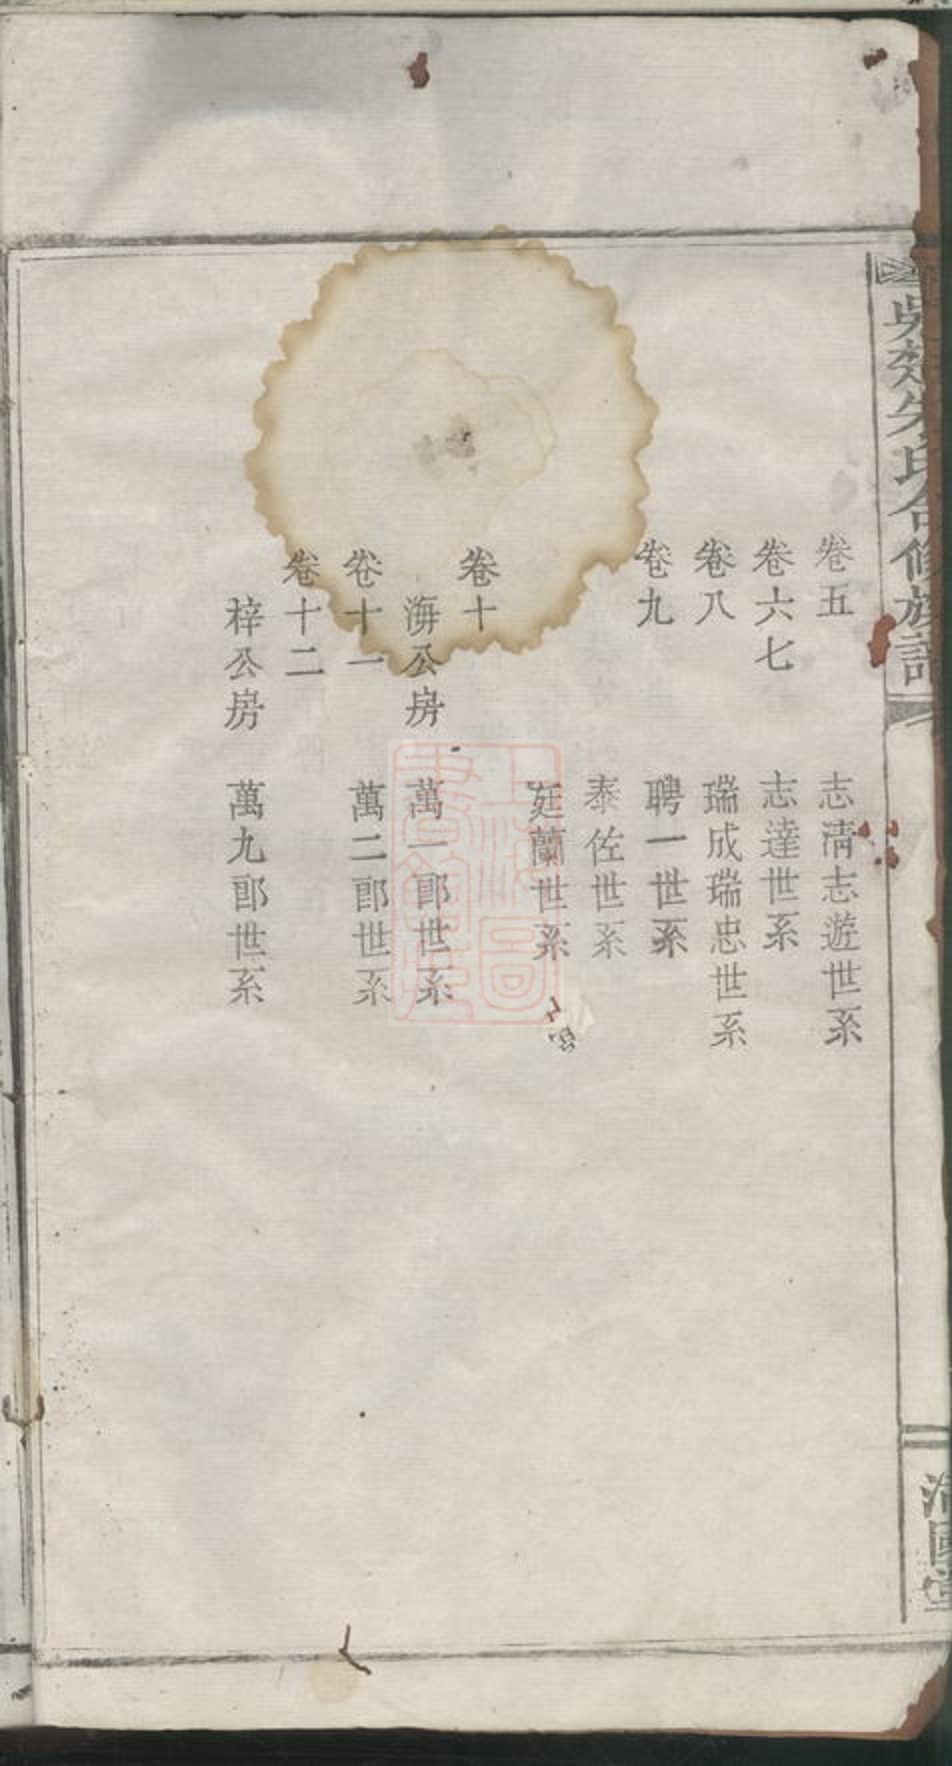 朱氏合修族譜
卷五　志淸志遊世系
卷六七　志達世系
卷八　瑞成瑞忠世系
卷九　聘一世系
泰佐世系
廷蘭世系
卷十
海公房　萬一郎世系
卷十一　萬二郎世系
卷十二
梓公房　萬九郎世系